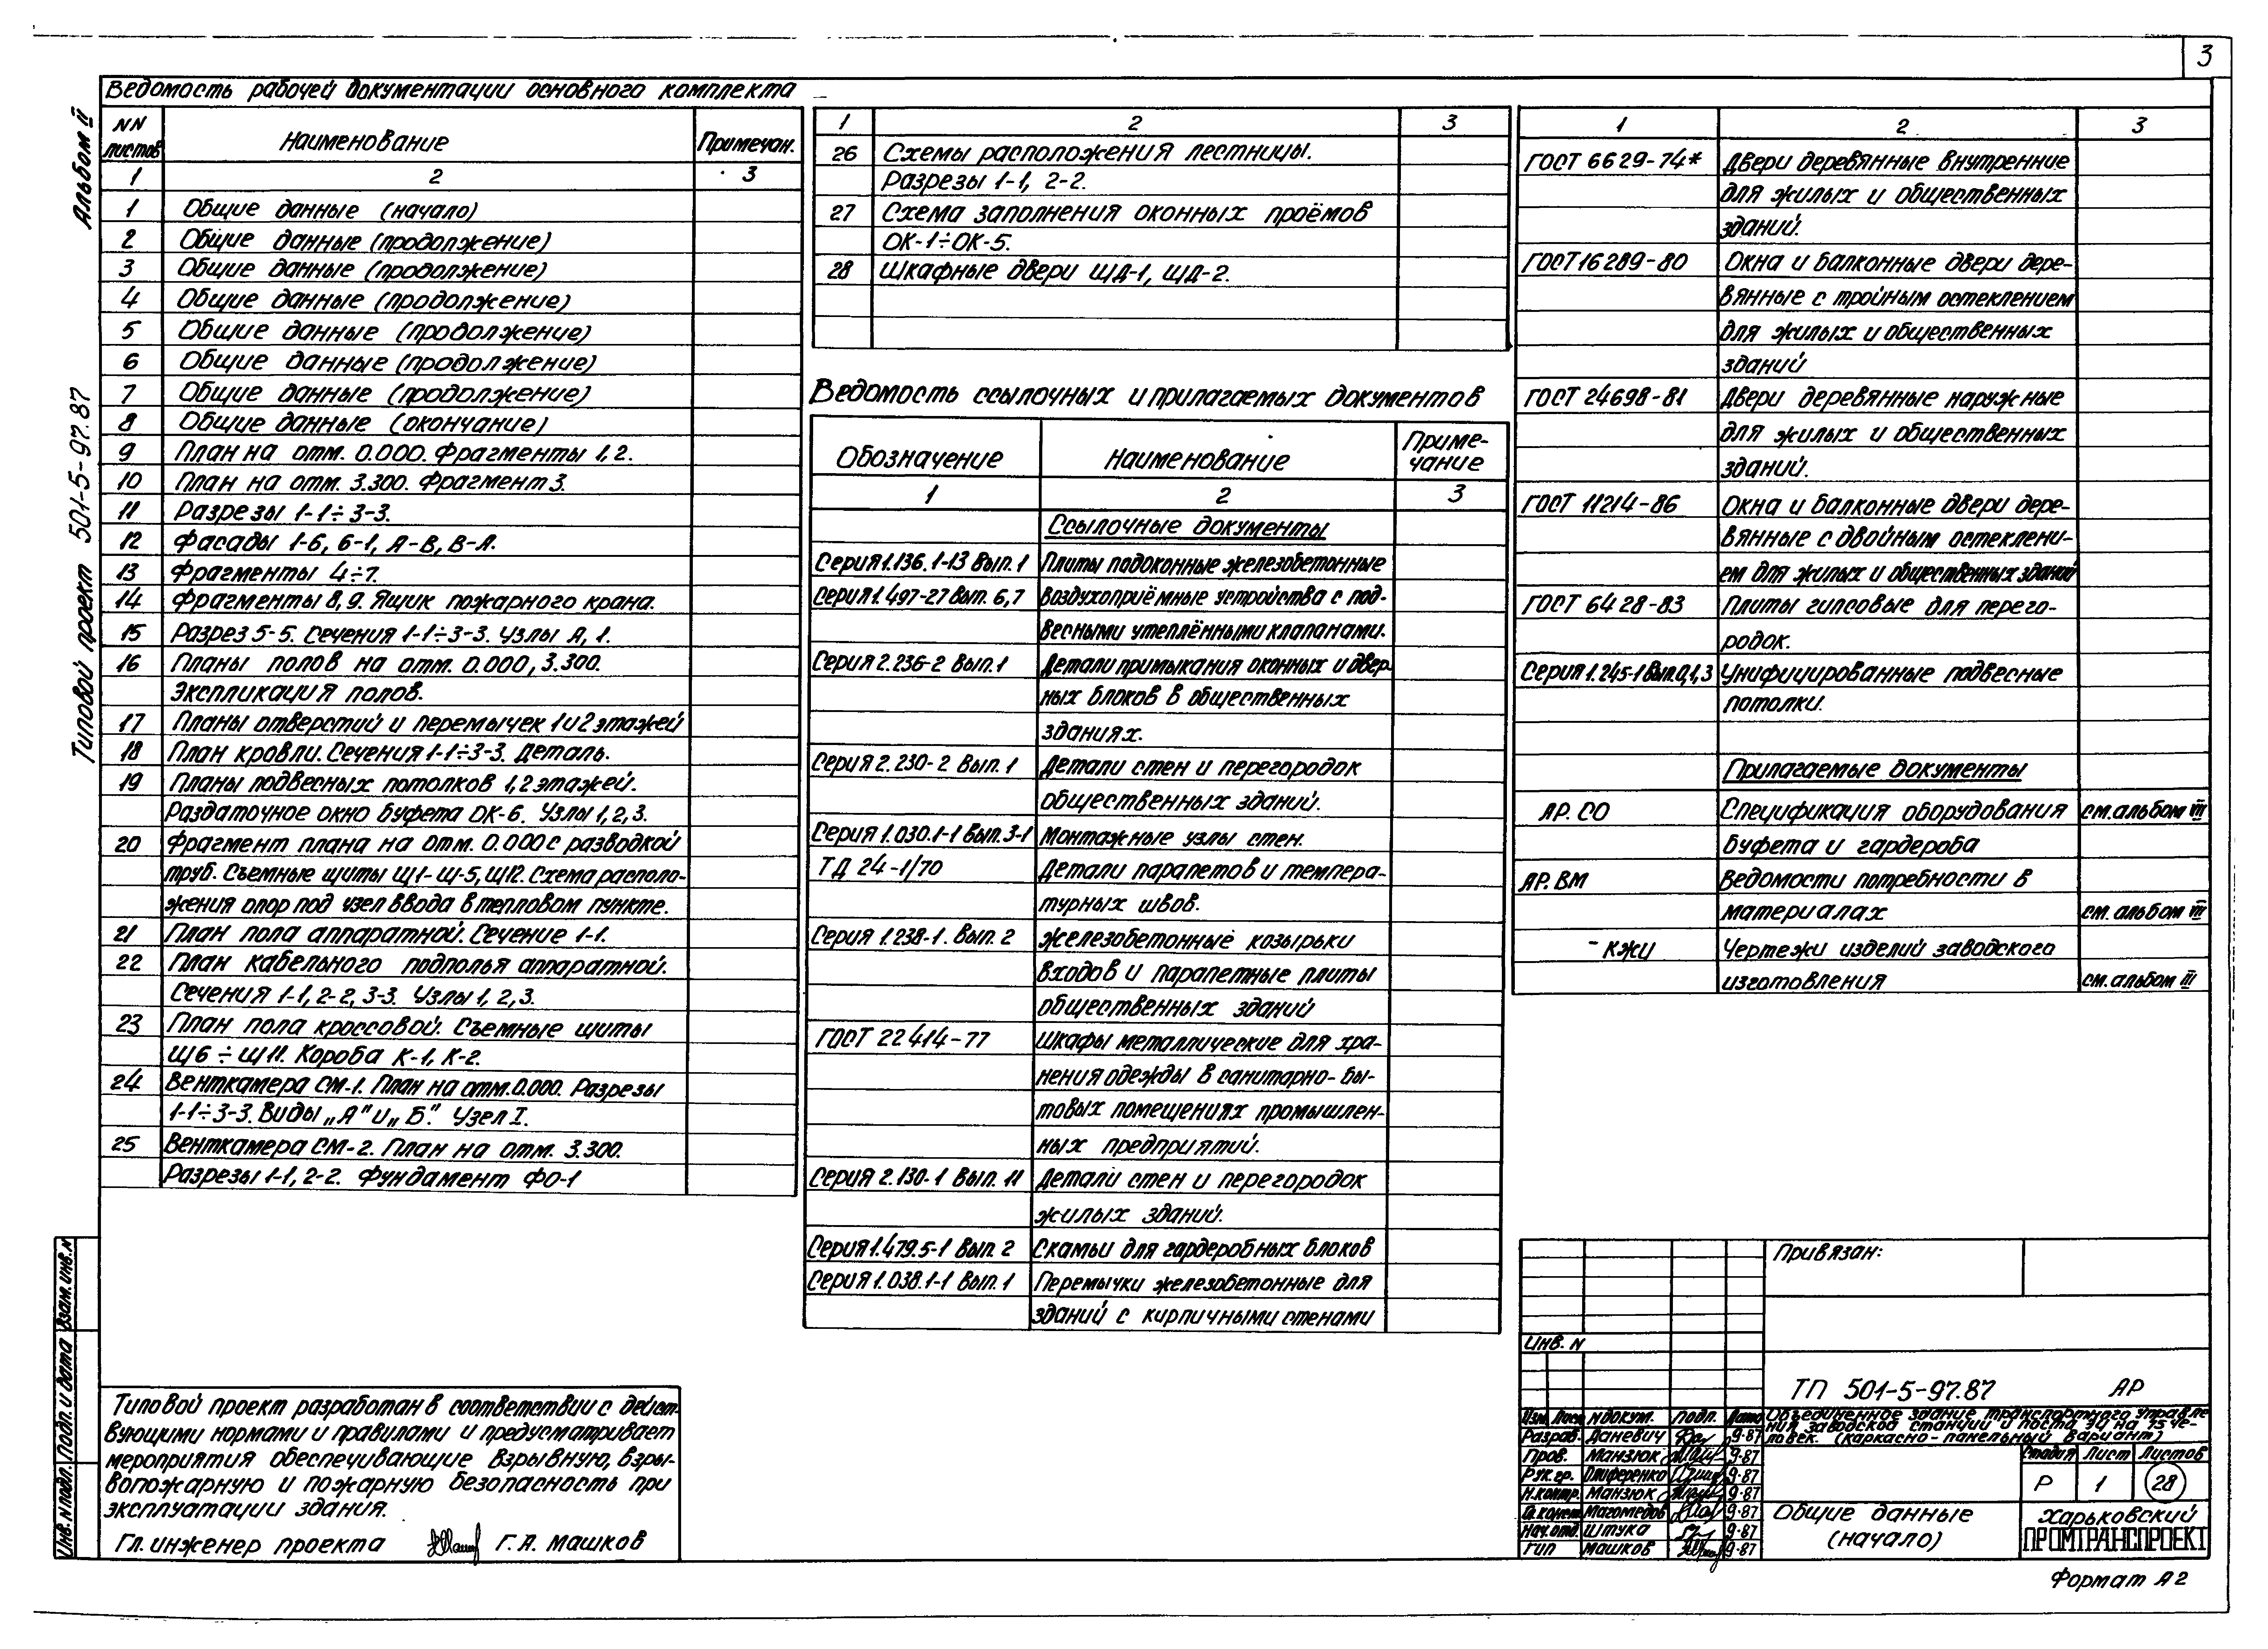 3
Альбом II
Типовой проект 501-5-97.87
Ведомость рабочей документации основного комплекта
NN листов Наименование Примечан.
1 2 3
1 Общие данные (начало)
2 Общие данные (продолжение)
3 Общие данные (продолжение)
4 Общие данные (продолжение)
5 Общие данные (продолжение)
6 Общие данные (продолжение)
7 Общие данные (продолжение)
8 Общие данные (окончание)
9 План на отм. 0.000. Фрагменты 1, 2.
10 План на отм. 3.300. Фрагмент 3.
11 Разрезы 1-1÷3-3.
12 Фасады 1-6, 6-1, А-В, В-А.
13 Фрагменты 4÷7.
14 Фрагменты 8, 9. Ящик пожарного крана.
15 Разрез 5-5. Сечения 1-1÷3-3. Узлы А, 1.
16 Планы полов на отм. 0.000, 3.300.
Экспликация полов.
17 Планы отверстий и перемычек 1 и 2 этажей
18 План кровли. Сечения 1-1÷3-3. Деталь.
19 Планы подвесных потолков 1, 2 этажей.
Раздаточное окно буфета ОК-6. Узлы 1, 2, 3.
20 Фрагмент плана на отм. 0.000 с разводкой
труб. Съемные щиты Щ1-Щ-5, Щ12. Схема располо-
жения опор под узел ввода в тепловом пункте.
21 План пола аппаратной. Сечение 1-1.
22 План кабельного подполья аппаратной.
Сечения 1-1, 2-2, 3-3. Узлы 1, 2, 3.
23 План пола кроссовой. Съемные щиты
Щ6÷Щ11. Короба К-1, К-2.
24 Венткамера СМ-1. План на отм. 0.000. Разрезы
1-1÷3-3. Виды „А" и „Б". Узел I.
25 Венткамера СМ-2. План на отм. 3.300.
Разрезы 1-1, 2-2. Фундамент ФО-1
1 2 3
26 Схемы расположения лестницы.
Разрезы 1-1, 2-2.
27 Схема заполнения оконных проёмов
ОК-1÷ОК-5.
28 Шкафные двери ЩД-1, ЩД-2.
Ведомость ссылочных и прилагаемых документов
Обозначение Наименование Приме-
чание
1 2 3
Ссылочные документы
Серия 1.136.1-13 Вып. 1 Плиты подоконные железобетонные
Серия 1.497-27 Вып. 6,7 Воздухоприёмные устройства с под-
весными утеплёнными клапанами.
Серия 2.236-2 Вып. 1 Детали примыкания оконных и двер
ных блоков в общественных
зданиях.
Серия 2.230-2 Вып. 1 Детали стен и перегородок
общественных зданий.
Серия 1.030.1-1 Вып. 3-1 Монтажные узлы стен.
ТД 24-1/70 Детали парапетов и темпера-
турных швов.
Серия 1.238-1. Вып. 2 Железобетонные козырьки
входов и парапетные плиты
общественных зданий
ГОСТ 22414-77 Шкафы металлические для хра-
нения одежды в санитарно-бы-
товых помещениях промышлен-
ных предприятий.
Серия 2.130-1 Вып. 11 Детали стен и перегородок
жилых зданий.
Серия 1.479.5-1 Вып. 2 Скамьи для гардеробных блоков
Серия 1.038.1-1 Вып. 1 Перемычки железобетонные для
зданий с кирпичными стенами
1 2 3
ГОСТ 6629-74* Двери деревянные внутренние
для жилых и общественных
зданий.
ГОСТ 16289-80 Окна и балконные двери дере-
вянные с тройным остеклением
для жилых и общественных
зданий
ГОСТ 24698-81 Двери деревянные наружные
для жилых и общественных
зданий.
ГОСТ 11214-86 Окна и балконные двери дере-
вянные с двойным остеклени-
ем для жилых и общественных зданий
ГОСТ 6428-83 Плиты гипсовые для перего-
родок.
Серия 1.245-1 Вып. 0,1,3 Унифицированные подвесные
потолки.
Прилагаемые документы
АР. СО Спецификация оборудования см. альбом III
буфета и гардероба
АР. ВМ Ведомости потребности в
материалах см. альбом III
- КЖИ Чертежи изделий заводского
изготовления см. альбом III
Типовой проект разработан в соответствии с дейст-
вующими нормами и правилами и предусматривает
мероприятия обеспечивающие взрывную, взры-
вопожарную и пожарную безопасность при
эксплуатации здания.
Гл. инженер проекта Г. А. Машков
Взам. инв. N
Подп. и дата
Инв. N подл.
Привязан:
Инв. N
ТП 501-5-97.87 АР
Объединенное здание транспортного управле
ния заводской станции и поста ЭЦ на 75 че-
ловек. (каркасно-панельный вариант)
Изм. Лист N докум. Подп. Дата
Разраб. Даневич 9.87
Пров. Манзюк 9.87
Рук. гр. Олиференко 9.87
Н. контр. Манзюк 9.87
Гл. конст. Магомедов 9.87
Нач. отд. Штука 9.87
ГИП Машков 9.87
Стадия Лист Листов
Р 1 28
Общие данные
(начало)
Харьковский
ПРОМТРАНСПРОЕКТ
Формат А2